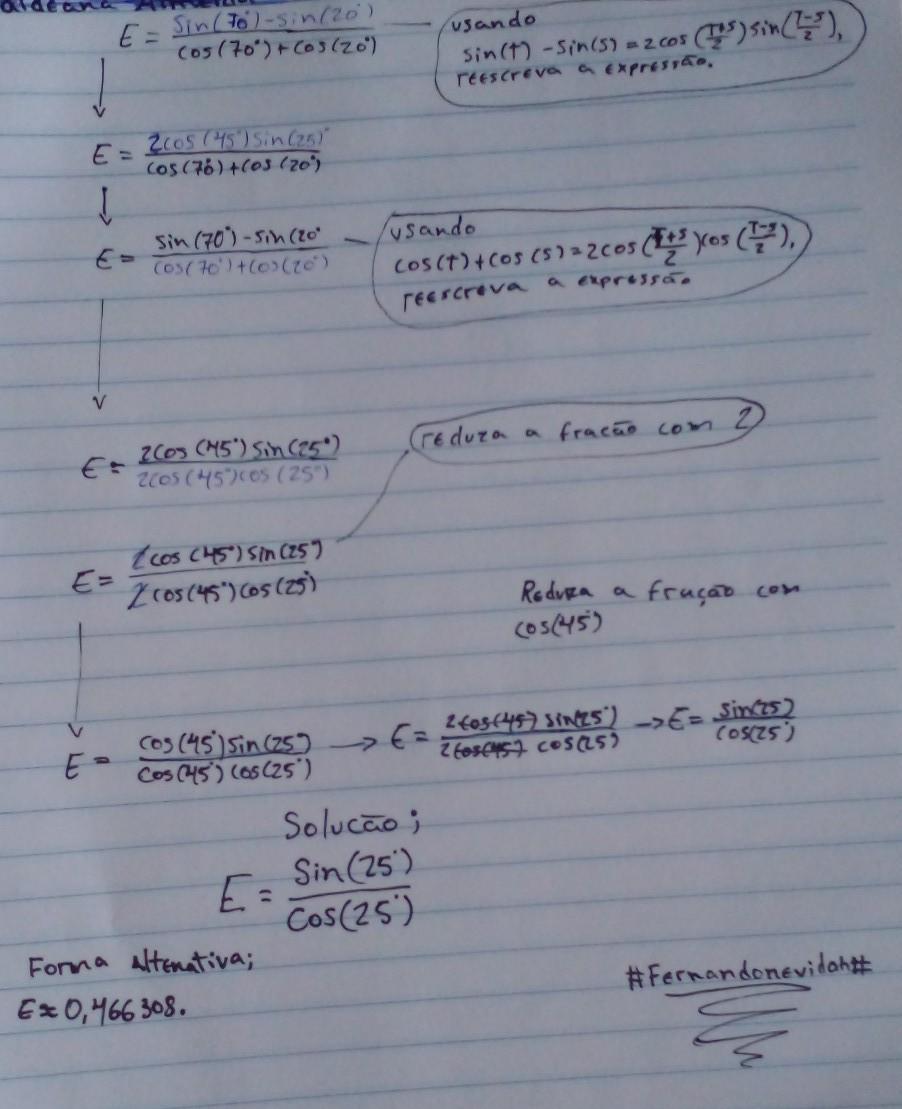 E = sin(70°)-sin(20°) / cos(70°)+cos(20°)
usando
sin(t) - sin(s) = 2cos(T+S/2) sin(T-S/2),
reescreva a expressão.
E = 2cos(45°)sin(25)° / cos(70°)+cos(20°)
E = sin(70°)-sin(20° / cos(70°)+cos(20°)
usando
cos(t)+cos(s)=2cos(T+S/2)cos(T-S/2),
reescreva a expressão.
reduza a fracão com 2
E = 2cos(45°)sin(25°) / 2cos(45°)cos(25°)
E = 2cos(45°)sin(25°) / 2cos(45°)cos(25°)
Reduza a frução com
cos(45°)
E = cos(45°)sin(25°) / cos(45°)cos(25°) → E = 2cos(45) sin(25°) / 2cos(45) cos(25) → E = sin(25) / cos(25°)
Solucão;
E = Sin(25°) / Cos(25°)
Forma Altenativa;
E≈0,466308.
#Fernandonevidah#